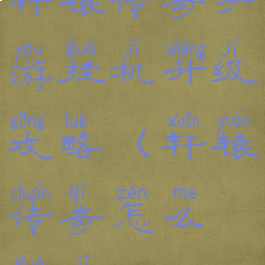 轩辕传奇手
yóu guà jī shēng jí
游挂机升级
gōng lüè xuān yuán
攻略（轩辕
chuán qí zěn me
传奇怎么